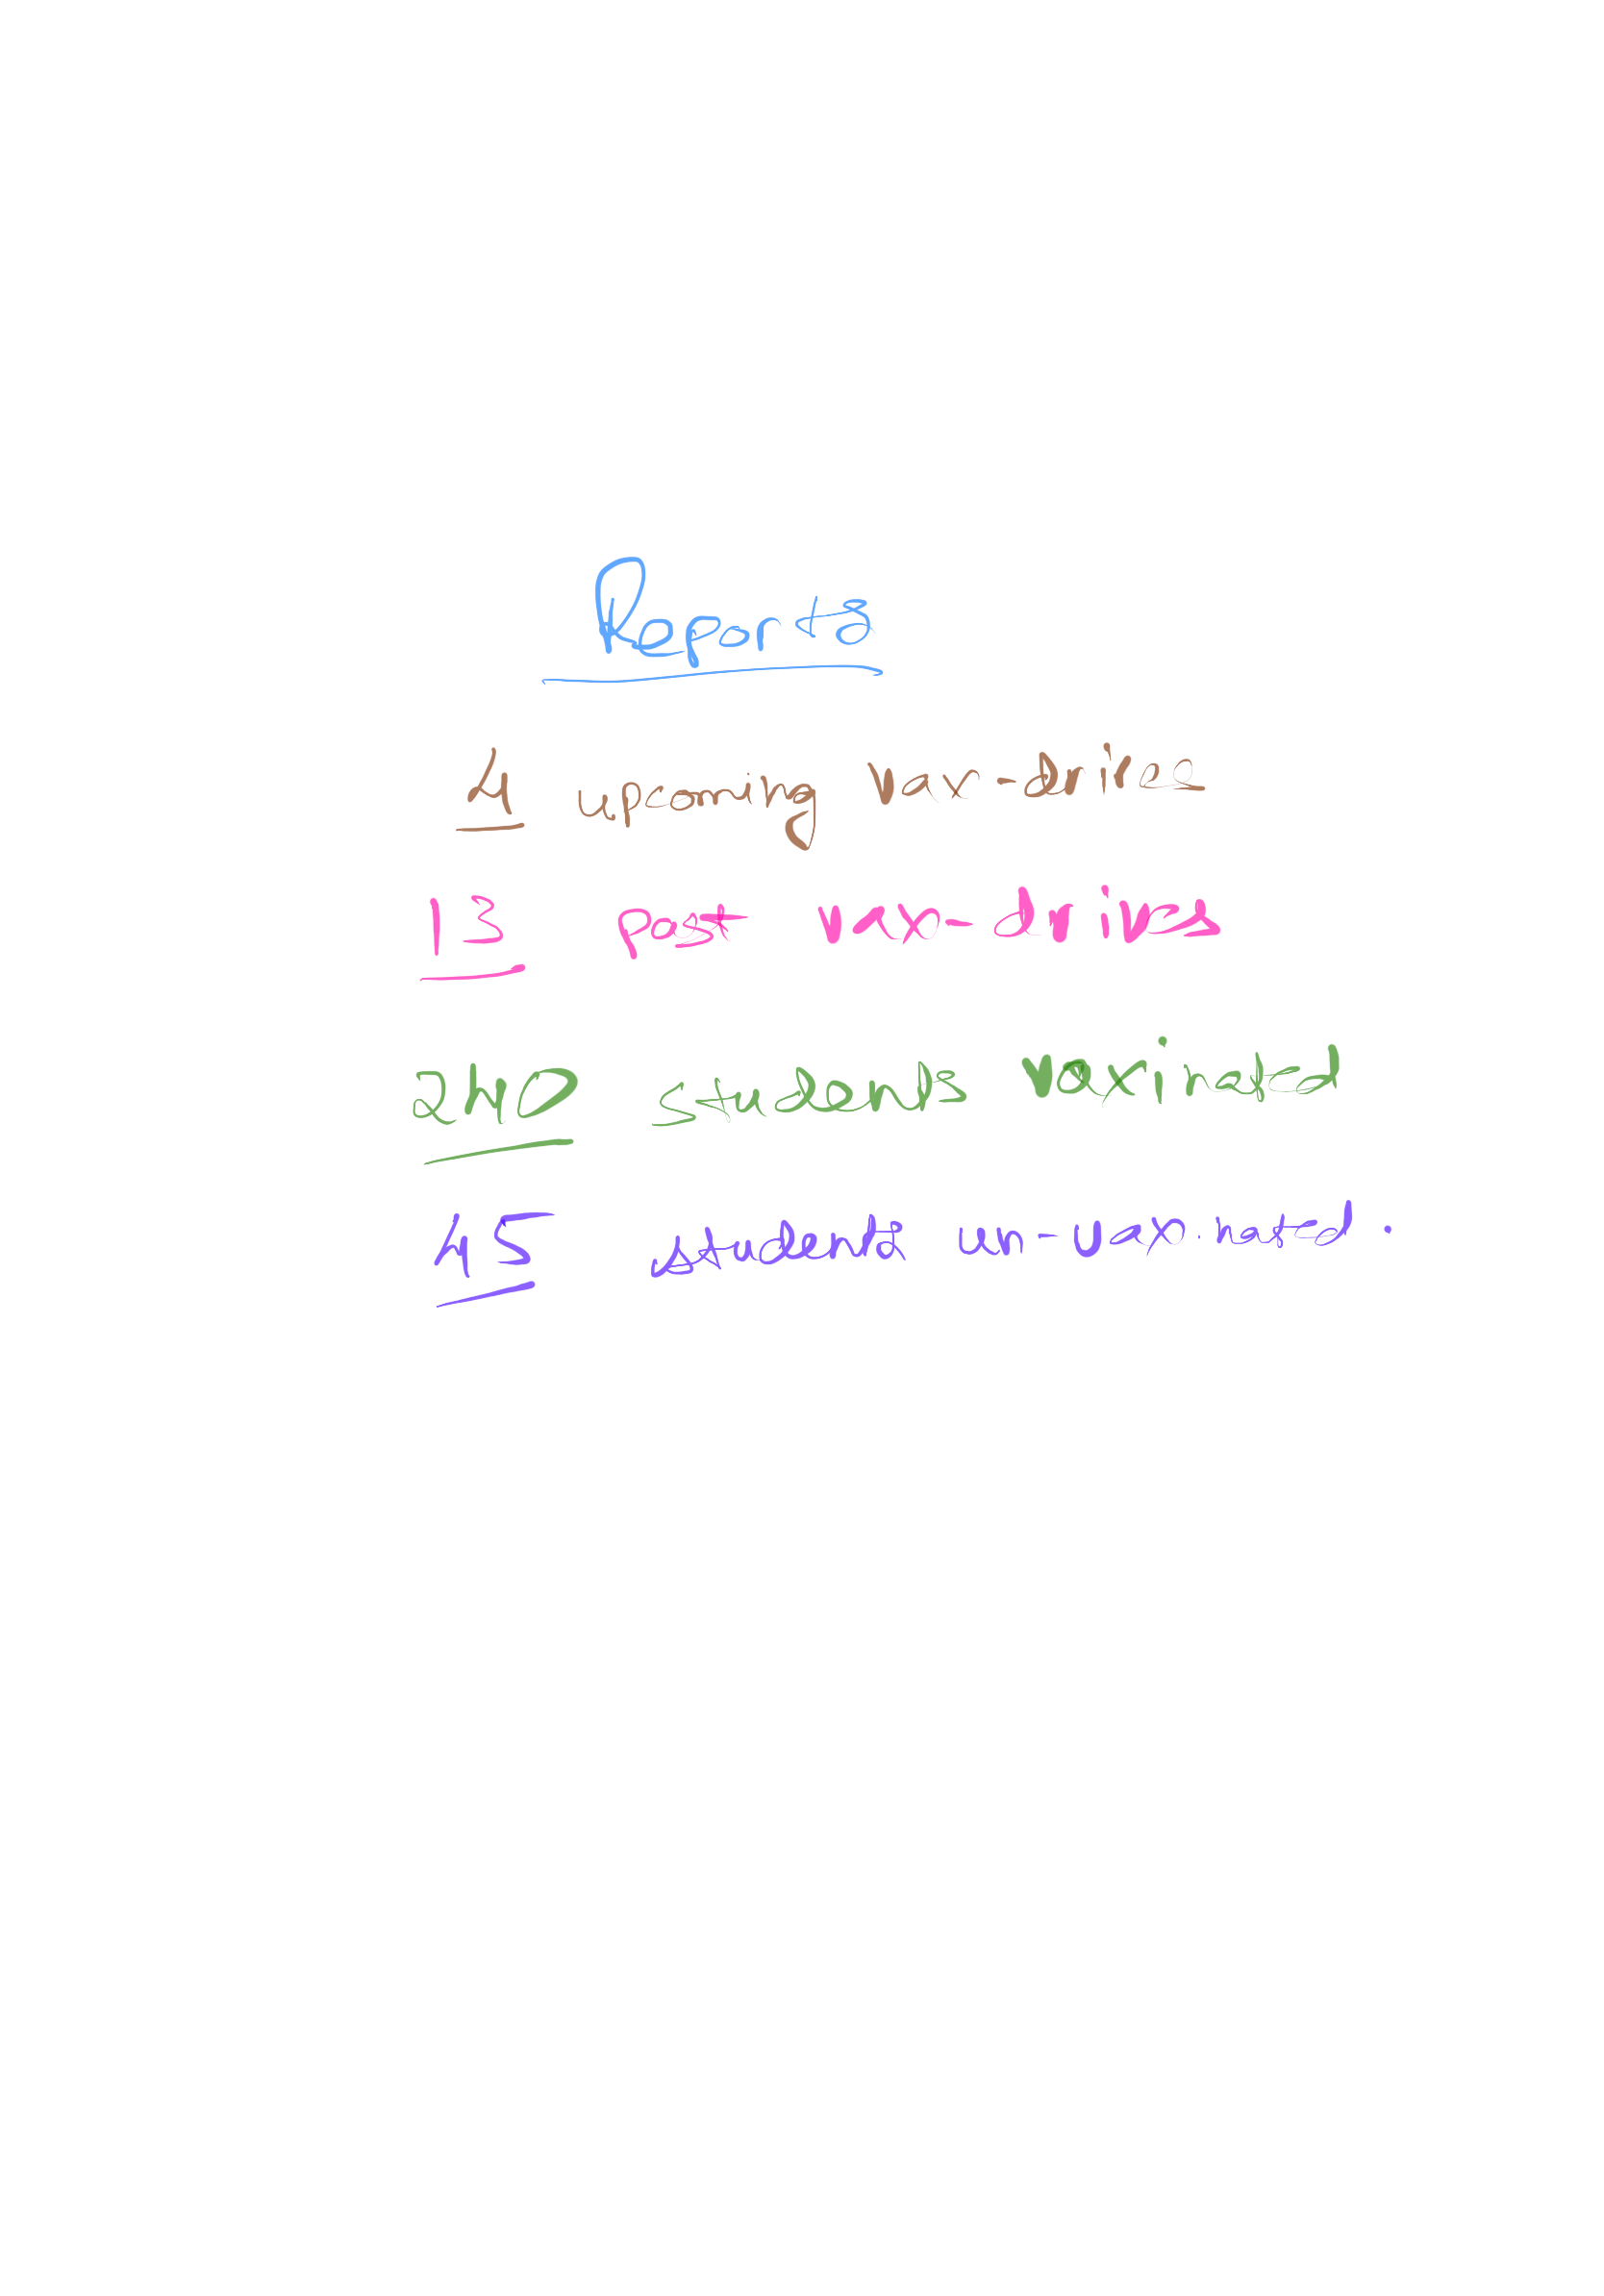 Reports
4 upcoming vax-drives
13 past vax-drives
240 students vaxinated
45 students un-vaxinated.